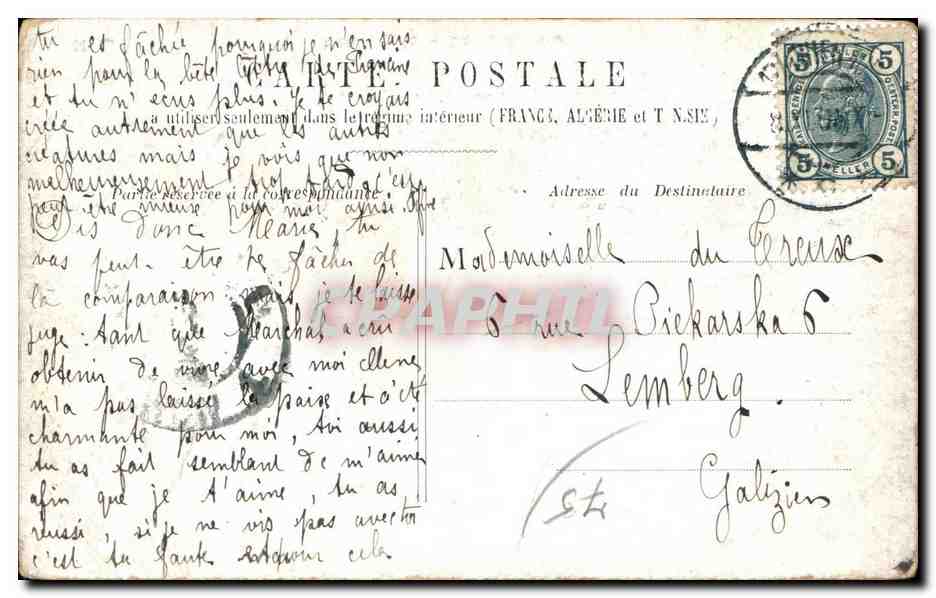 tu es fâchée pourquoi je n'en sais
rien pour la bête
et tu n' plus. Je te croyais
CARTE POSTALE
à utiliser seulement dans le régime intérieur (FRANCE, ALGÉRIE et TUNISIE)
créée autrement que les autres
créatures mais je vois que non
malheureusement
Partie réservée à la correspondance
peut être mieux pour moi ainsi.
Dis donc Marie, tu
vas peut-être te fâcher de
la comparaison mais je te laisse
juge. tant que a cru
obtenir de vivre avec moi
m'a pas laissé la paix et a été
charmante pour moi, toi aussi
tu as fait semblant de m'aimer
afin que je t'aime, tu as
réussi, si je ne vis pas avec toi
c'est ta faute pour cela
Adresse du Destinataire
Mademoiselle du Treux
6 rue Piekarska 6
Lemberg.
Galizien
75
5 5
5 HELLER 5
CPAPHIL